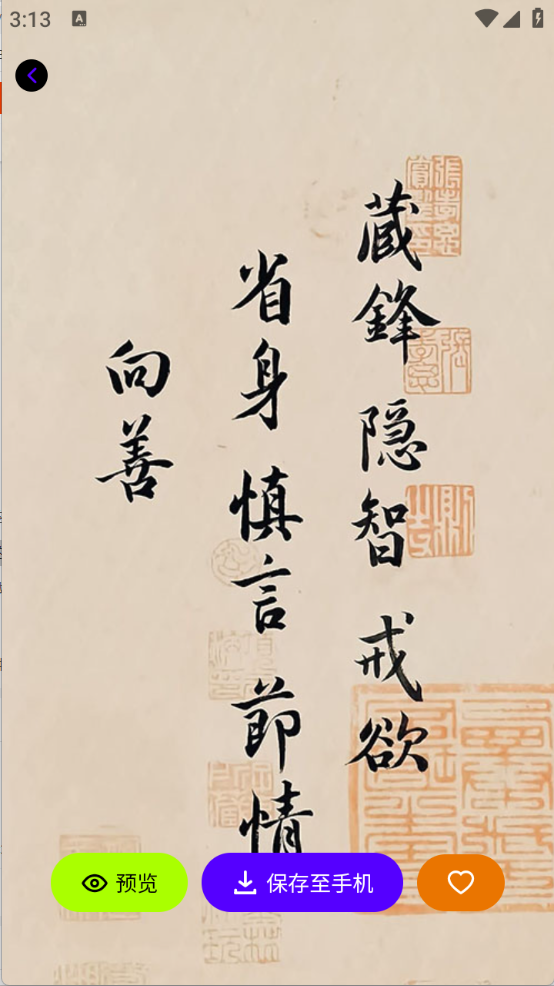 3:13
A
蔵鋒 隐智 戒欲
省身 慎言 節情
向善
预览
保存至手机